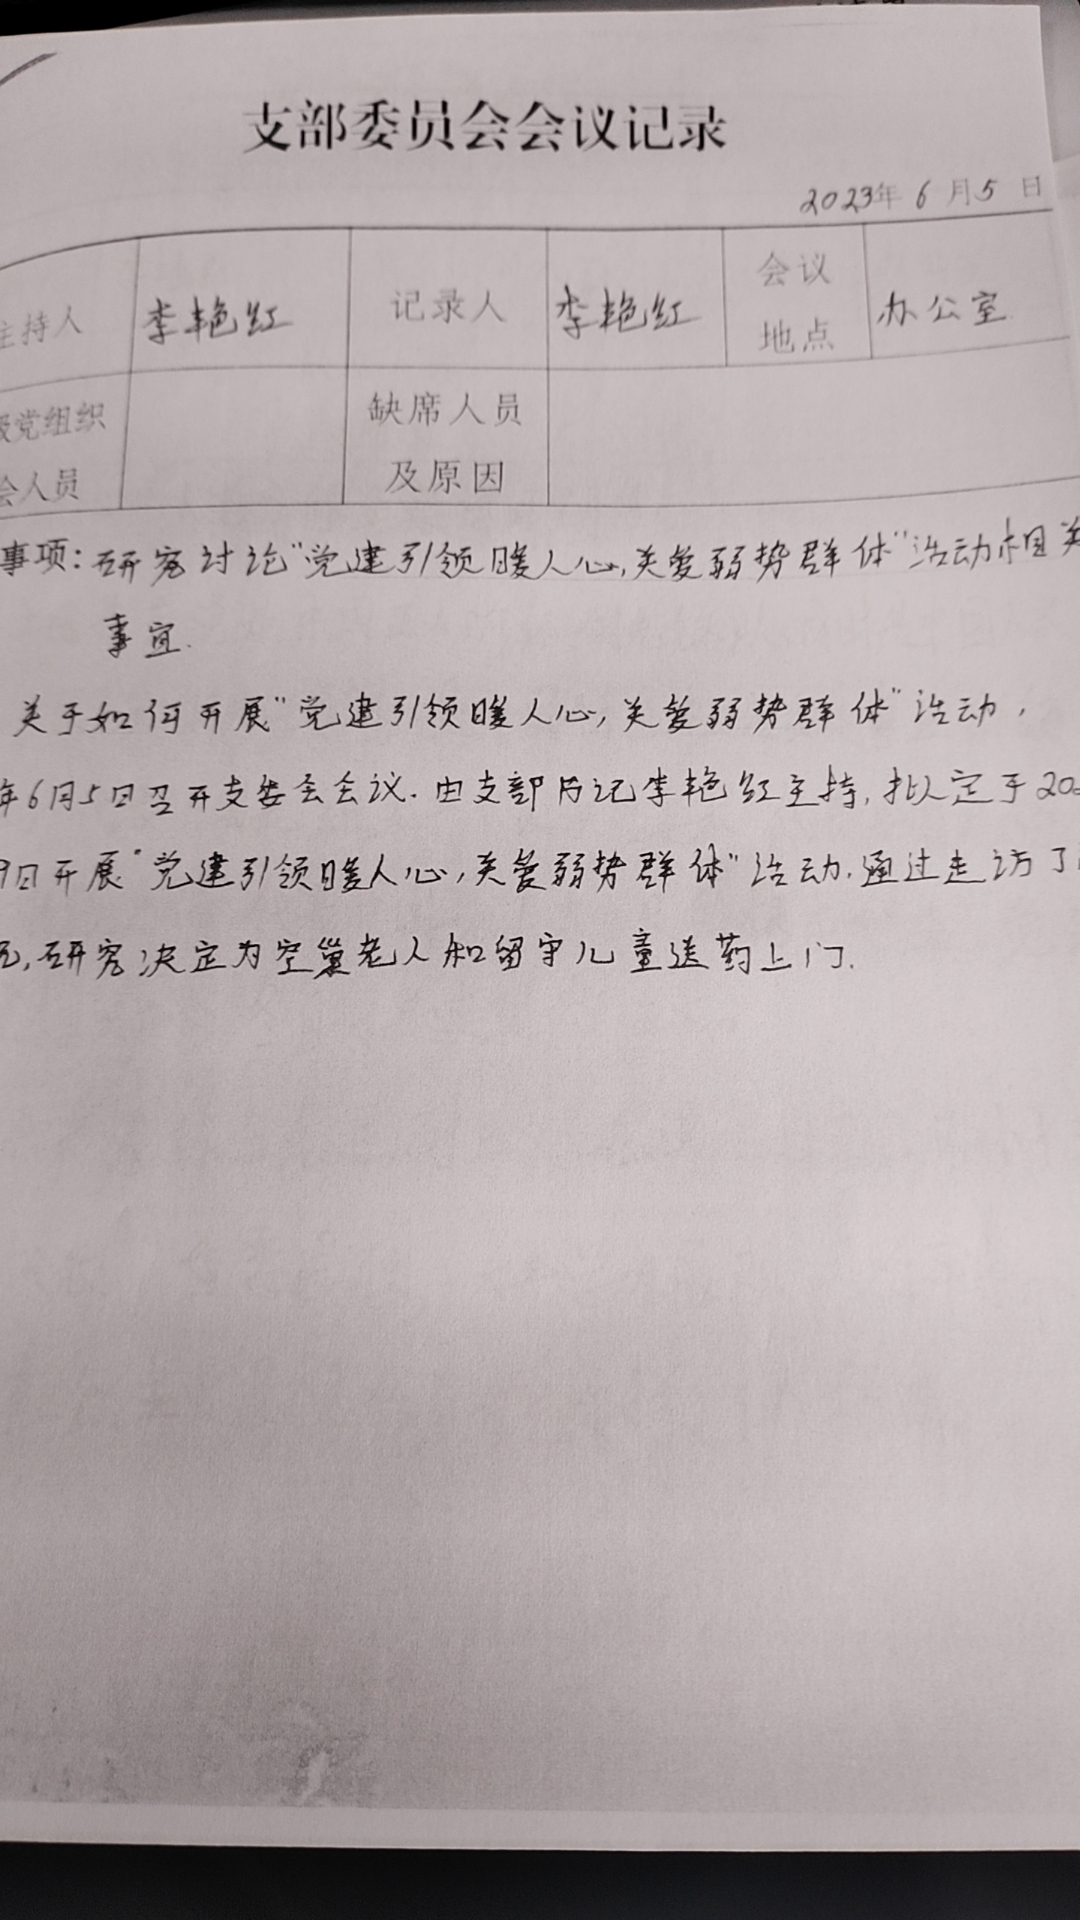 支部委员会会议记录
2023年 6 月 5 日
主持人 李艳红 记录人 李艳红 会议地点 办公室
级党组织
会人员
缺席人员
及原因
事项：研究讨论"党建引领暖人心,关爱弱势群体"活动相关
事宜.
关于如何开展"党建引领暖人心,关爱弱势群体"活动,
年6月5日召开支委会会议.由支部书记李艳红主持,拟定于202
9日开展"党建引领暖人心,关爱弱势群体"活动.通过走访了
,研究决定为空巢老人和留守儿童送药上门.